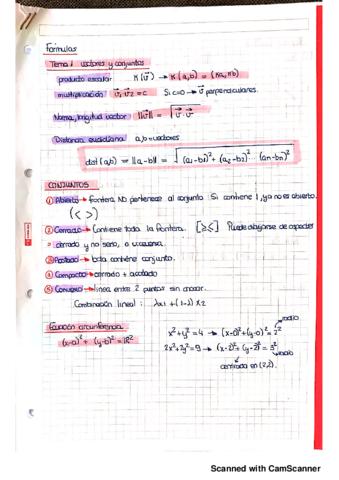 Fórmulas
Tema 1 vectores y conjuntos
producto escalar K(v⃗) → K(a,b) = (Ka, Kb)
multiplicación v⃗1 v⃗2 = c Si c=0 → v⃗ perpendiculares.
Norma, longitud vector ||v⃗|| = √(v⃗·v⃗)
Distancia euclidiana a,b=vectores
dist(a,b) = ||a-b|| = √((a1-b1)²+(a2-b2)²·(an-bn)²)
CONJUNTOS
① Abierto → frontera NO pertenece al conjunto Si contiene 1, ya no es abierto.
(< >)
② Cerrado → Contiene toda la frontera. [≥≤] Puede alejarse de
cerrado y no serlo, o viceversa.
③ Acotado → bola contiene conjunto.
④ Compacto → cerrado + acotado
⑤ Convexo → linea entre 2 puntos sin
Combinación lineal: λx1 + (1-λ)x2
Ecuación circunferencia
(x-a)² + (y-b)² = R²
x²+y²=4 → (x-0)²+(y-0)²=2² radio
2x²+2y²=9 → (x-2)²+(y-2)²=3² radio
centrada en (2,2).
Scanned with CamScanner